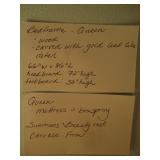 Bedframe - Queen
- wood
- carved with gold and
detail
66"W x 86"L
headboard 72" high
footboard 38" high
Queen
mattress + boxspring
Simmons Beautyrest
Firm